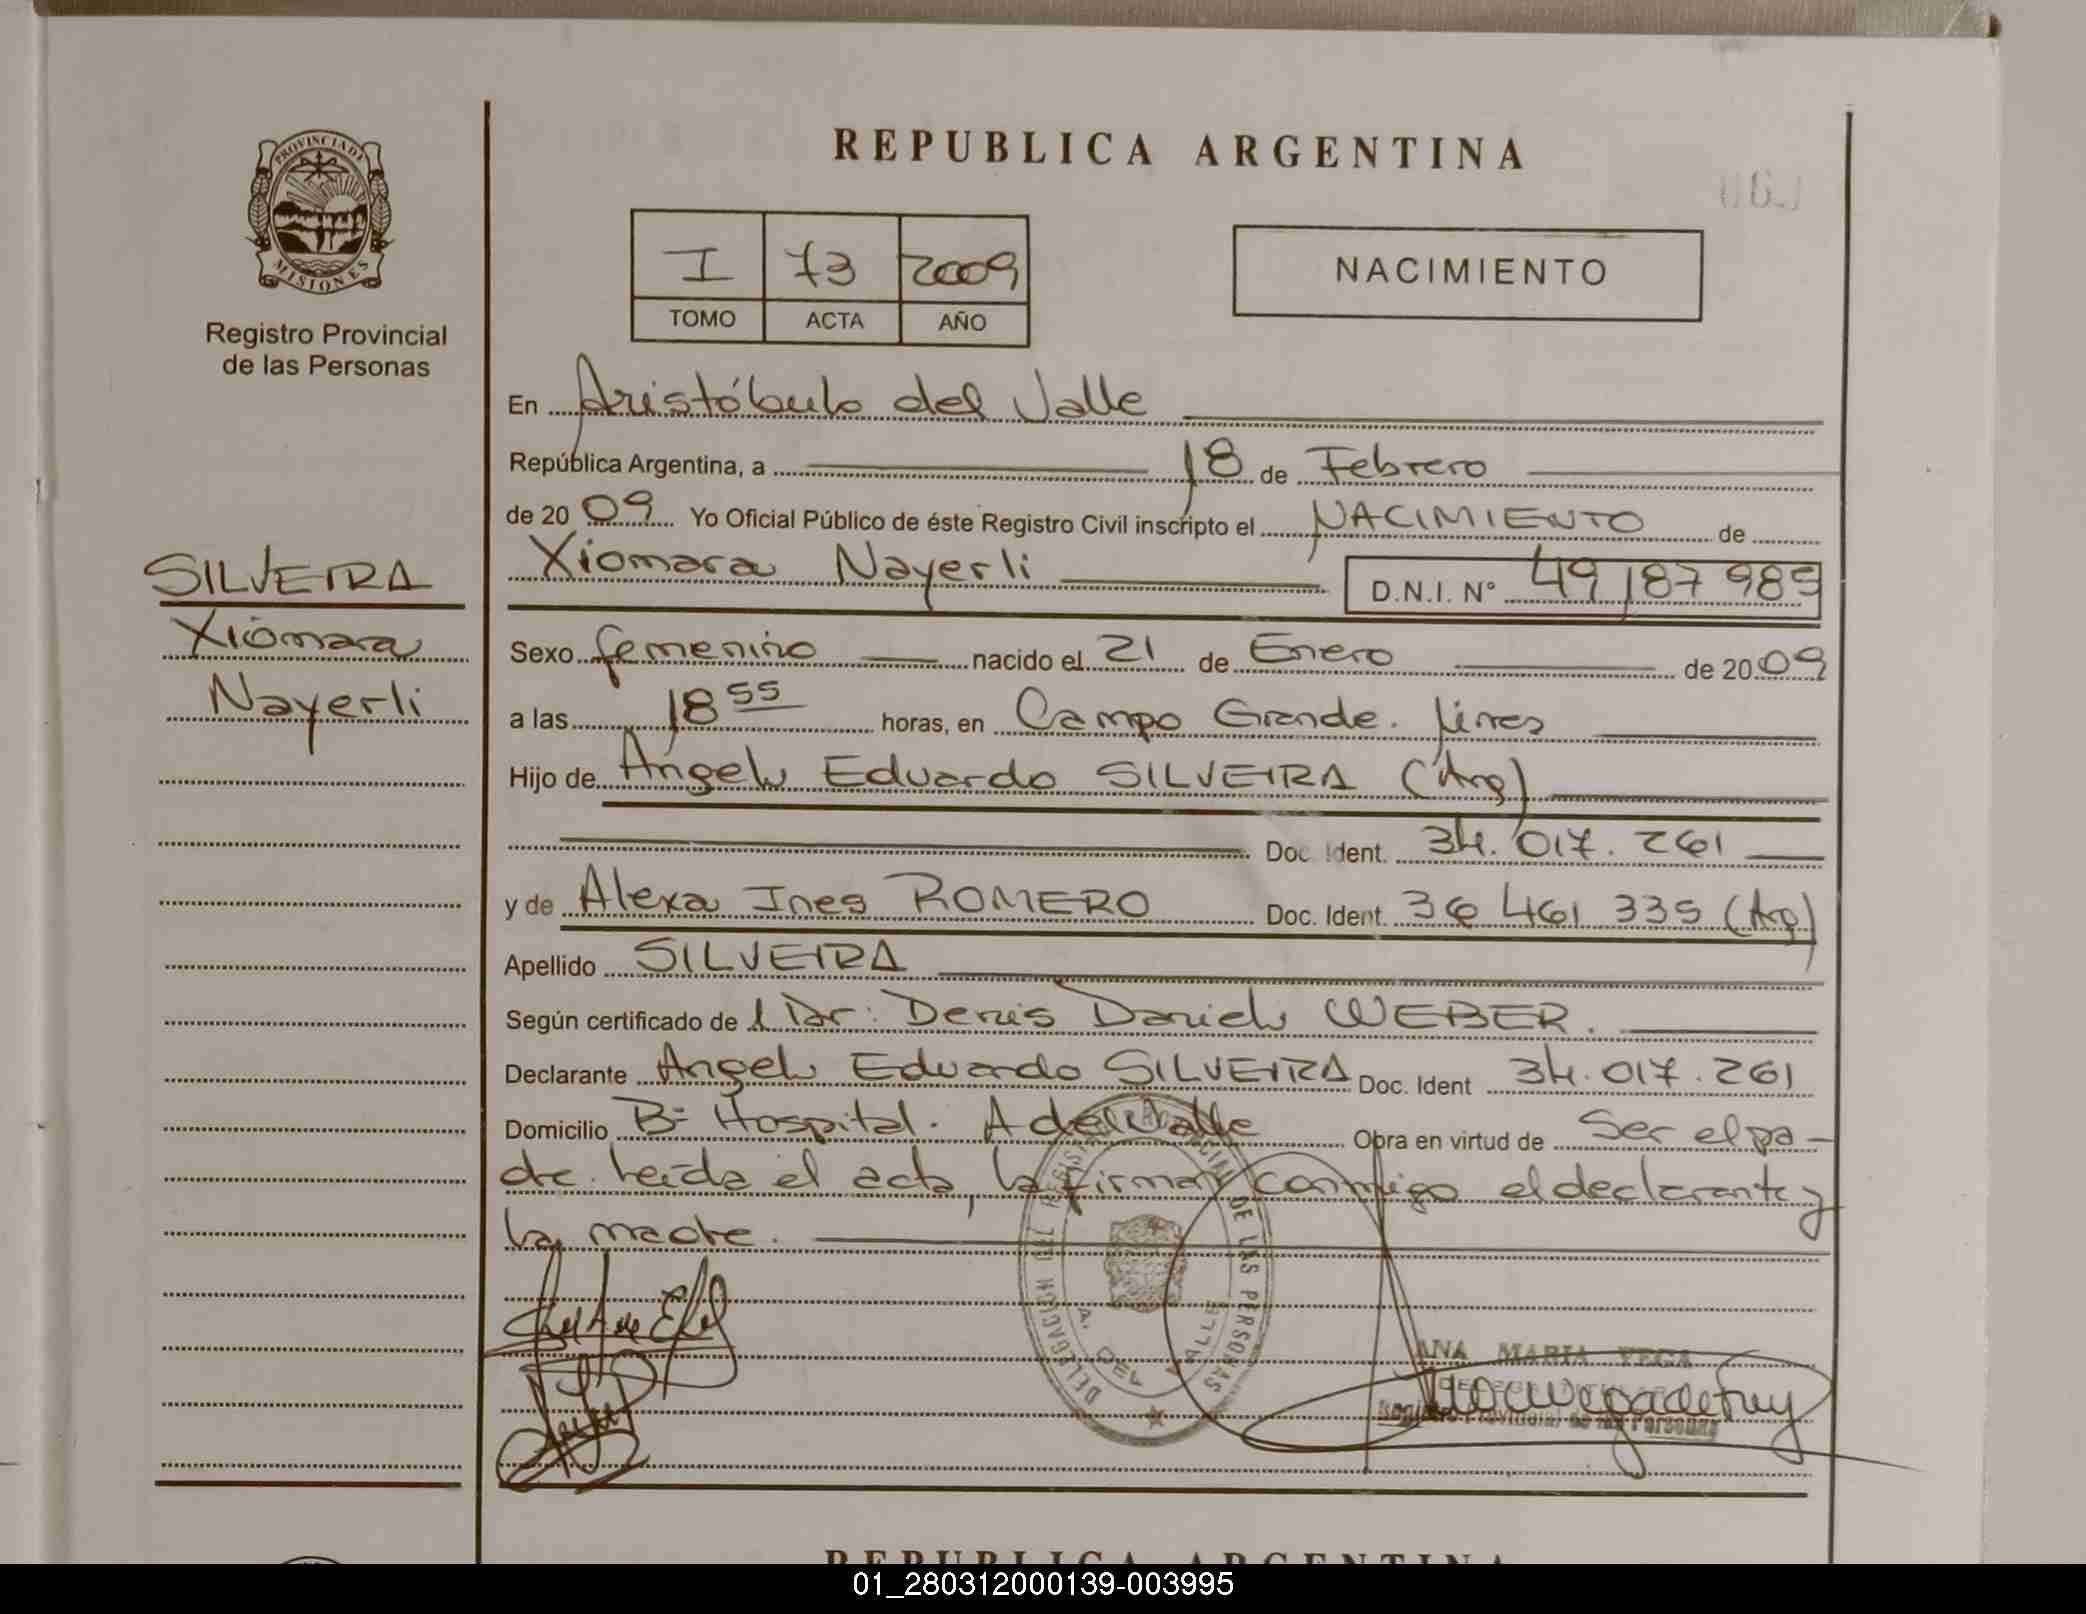 PROVINCIA DE
MISIONES
Registro Provincial
de las Personas
SILVEIRA
Xiomara
Nayerli
REPUBLICA ARGENTINA
I 73 2009
TOMO ACTA AÑO
NACIMIENTO
En Aristóbulo del Valle
República Argentina, a 18 de Febrero
de 2009 Yo Oficial Público de éste Registro Civil inscripto el NACIMIENTO de
Xiomara Nayerli D.N.I. Nº 49 187 989
Sexo femenino nacido el 21 de Enero de 2009
a las 18 55 horas, en Campo Grande. Mnes
Hijo de Angel Eduardo SILVEIRA (Arg)
Doc. Ident. 34.017.261
y de Alexa Ines ROMERO Doc. Ident. 36 461 335 (Arg)
Apellido SILVEIRA
Según certificado de l Dr: Denis Daniel WEBER.
Declarante Angel Eduardo SILVEIRA Doc. Ident 34.017.261
Domicilio Bº Hospital. A del Valle Obra en virtud de Ser el pa-
dre. Leída el acta, la firman conmigo el declarante y
la madre.
DELEGACION DEL REGISTRO PROVINCIAL DE LAS PERSONAS
A. DEL VALLE
ANA MARIA VEGA
Registro Provincial de las Personas
REPUBLICA ARGENTINA
01_280312000139-003995